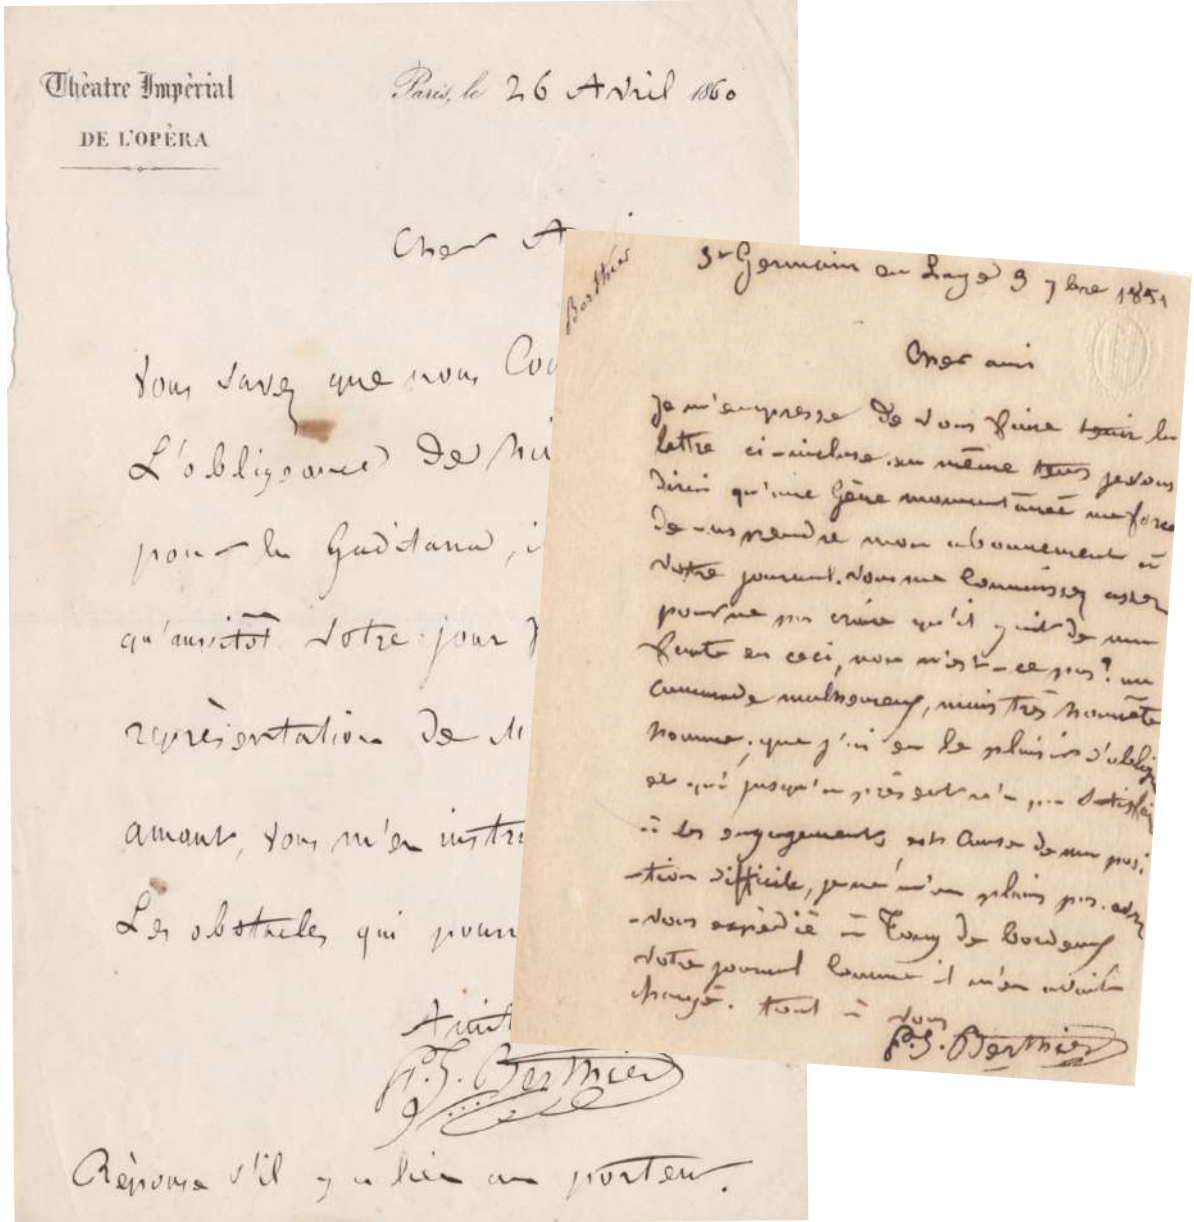 Théatre Impérial
DE L'OPÉRA
Paris, le 26 Avril 1860
Cher A
Vous savez que nous Cou
L'obligeance de
pour la Gaditana, i
qu'aussitôt votre jour
représentation de M
amant, vous m'en instr
Les obstacles qui pourr
Amit
P. S. Berthier
Réponse s'il y a lieu au porteur.
Berthier
St Germain en Laye 9 7bre 1851
Cher ami
Je m'empresse de vous faire tenir la
lettre ci-incluse. en même tems je vous
dirai qu'une gêne momentanée me force
de suspendre mon abonnement à
votre journal. Vous me connaissez assez
pour ne pas croire qu'il y ait de ma
faute en ceci, non n'est-ce pas? un
camarade malheureux, mais très honnête
homme, que j'ai eu le plaisir d'oblig
et qui jusqu'à présent n'a pu satisfair
à ses engagements est cause de ma posi
-tion difficile, je ne m'en plains pas.
-vous expédié à Tony de bordeaux
votre journal comme il m'en avait
chargé. tout à vous
P. S. Berthier